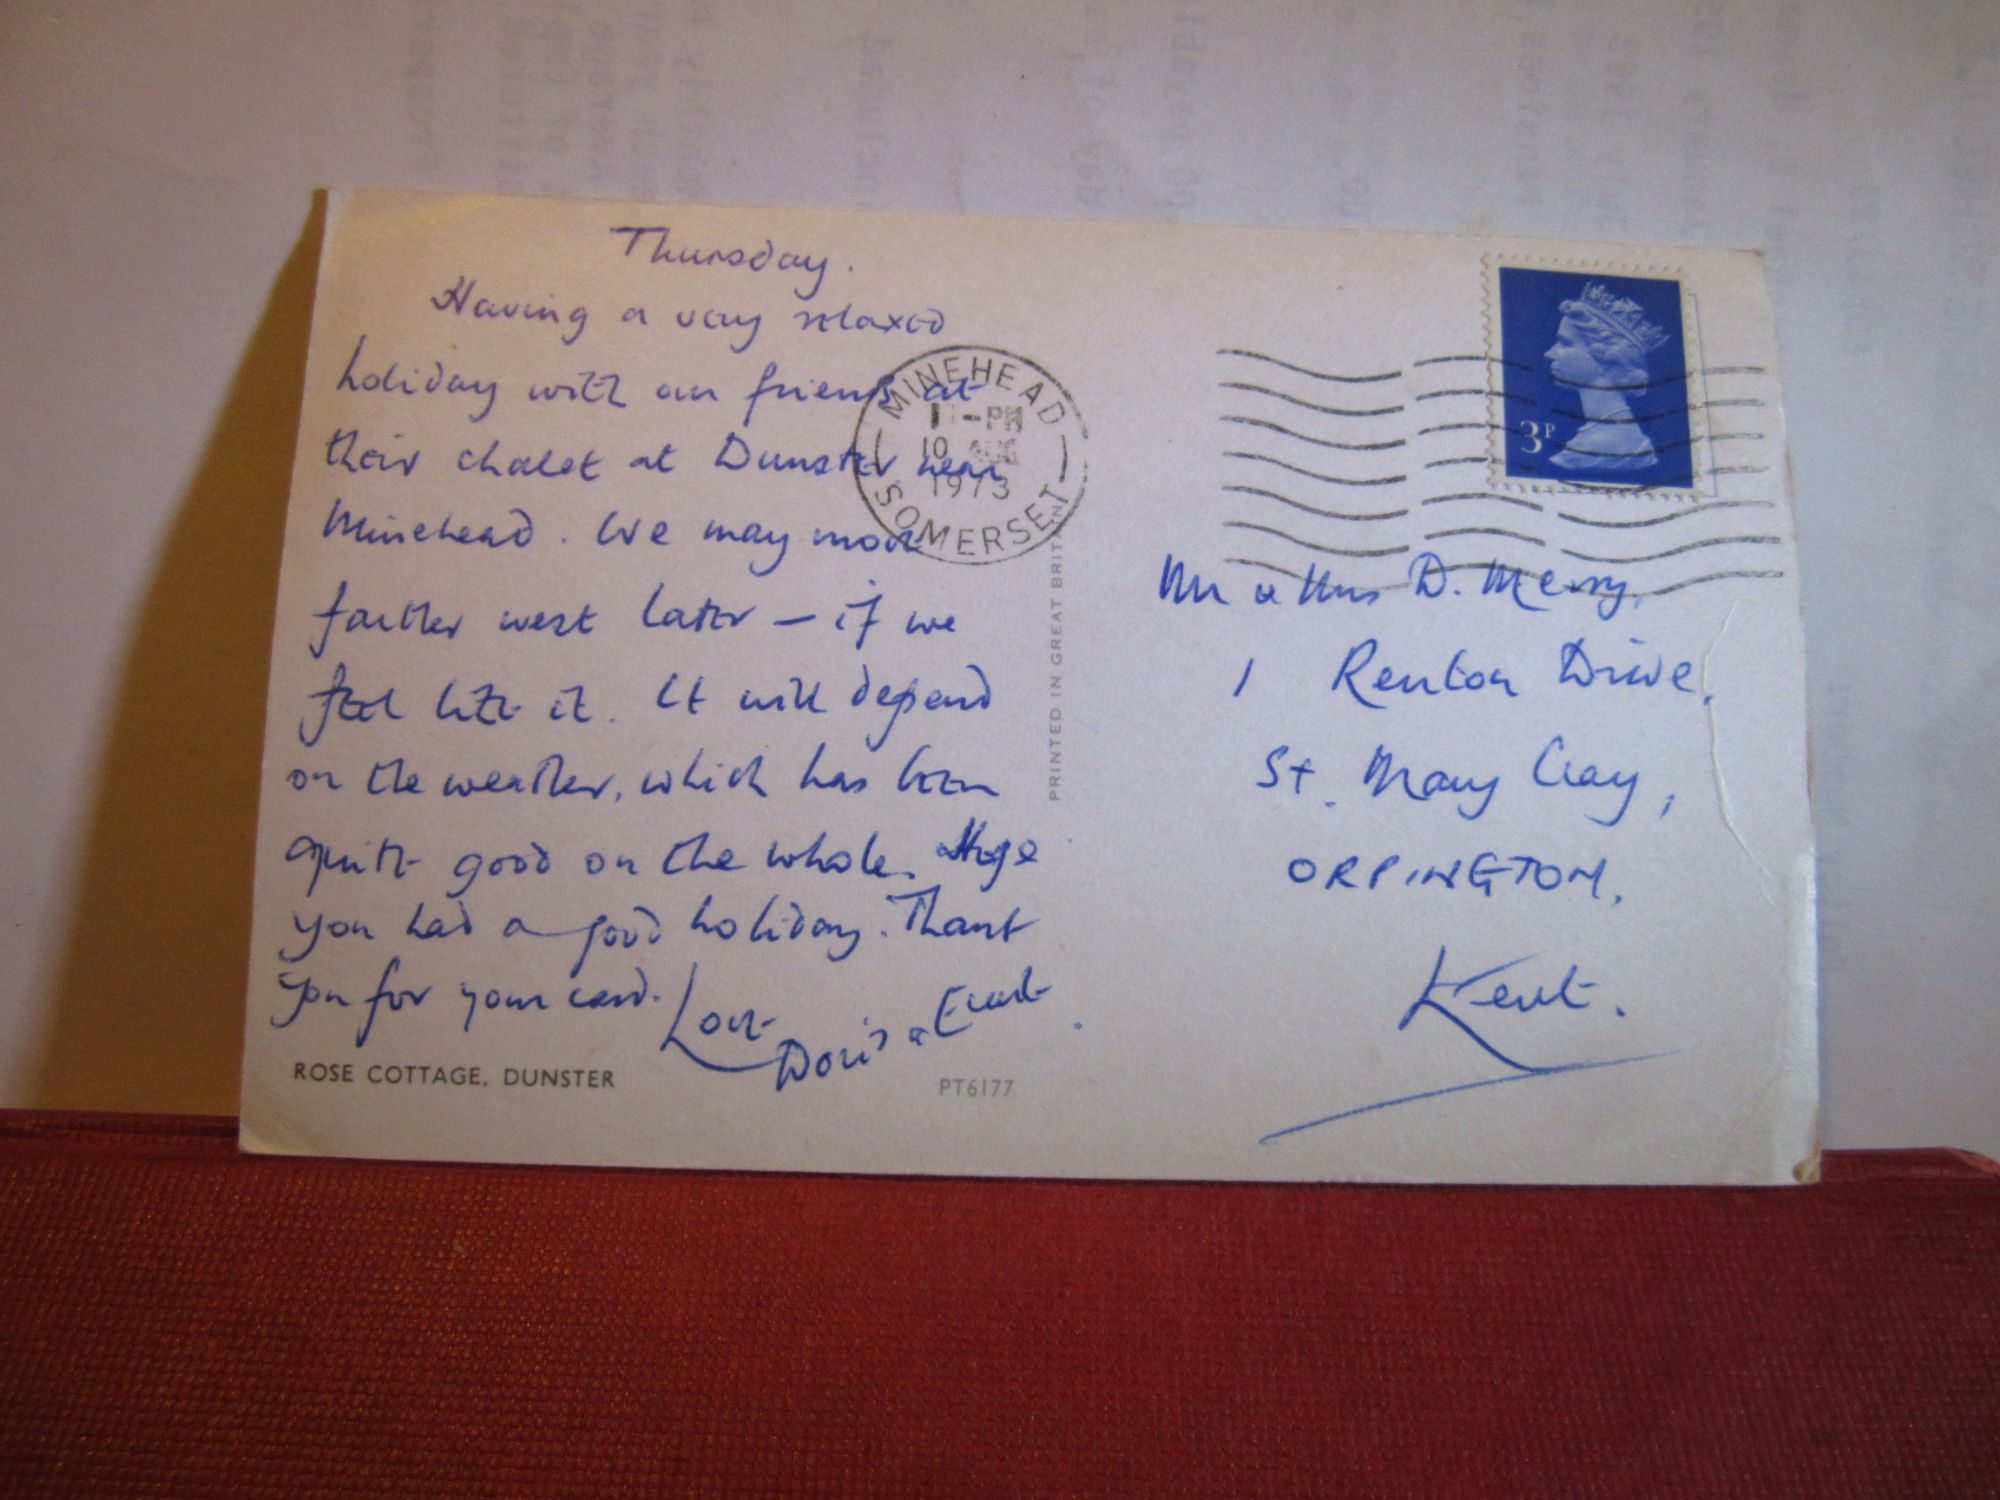 Thursday.
Having a very relaxed
holiday with our friends at
their chalet at Dunster near
Minehead. We may move
farther west later – if we
feel like it. It will depend
on the weather, which has been
quite good on the whole. Hope
you had a good holiday. Thank
you for your card. Love
Doris &
ROSE COTTAGE, DUNSTER
PT6177
PRINTED IN GREAT BRITAIN
MINEHEAD
-PM
10 AUG
1973
SOMERSET
3P
Mr & Mrs D. Merry,
1 Renton Drive,
St. Mary Cray,
ORPINGTON,
Kent.